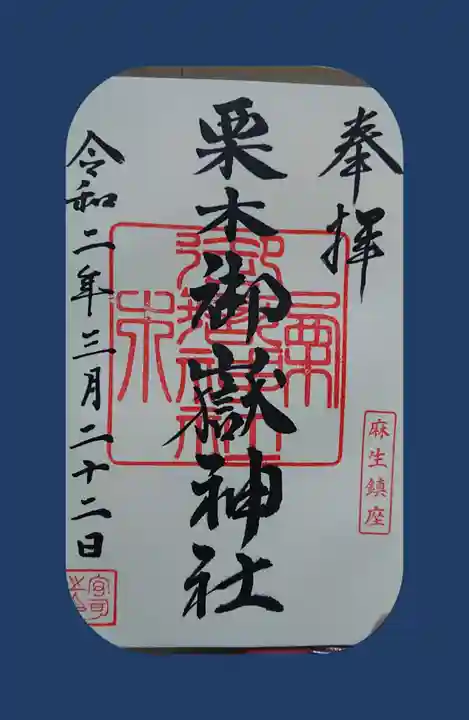 奉拝
麻生鎮座
栗木御嶽神社
令和二年三月二十二日